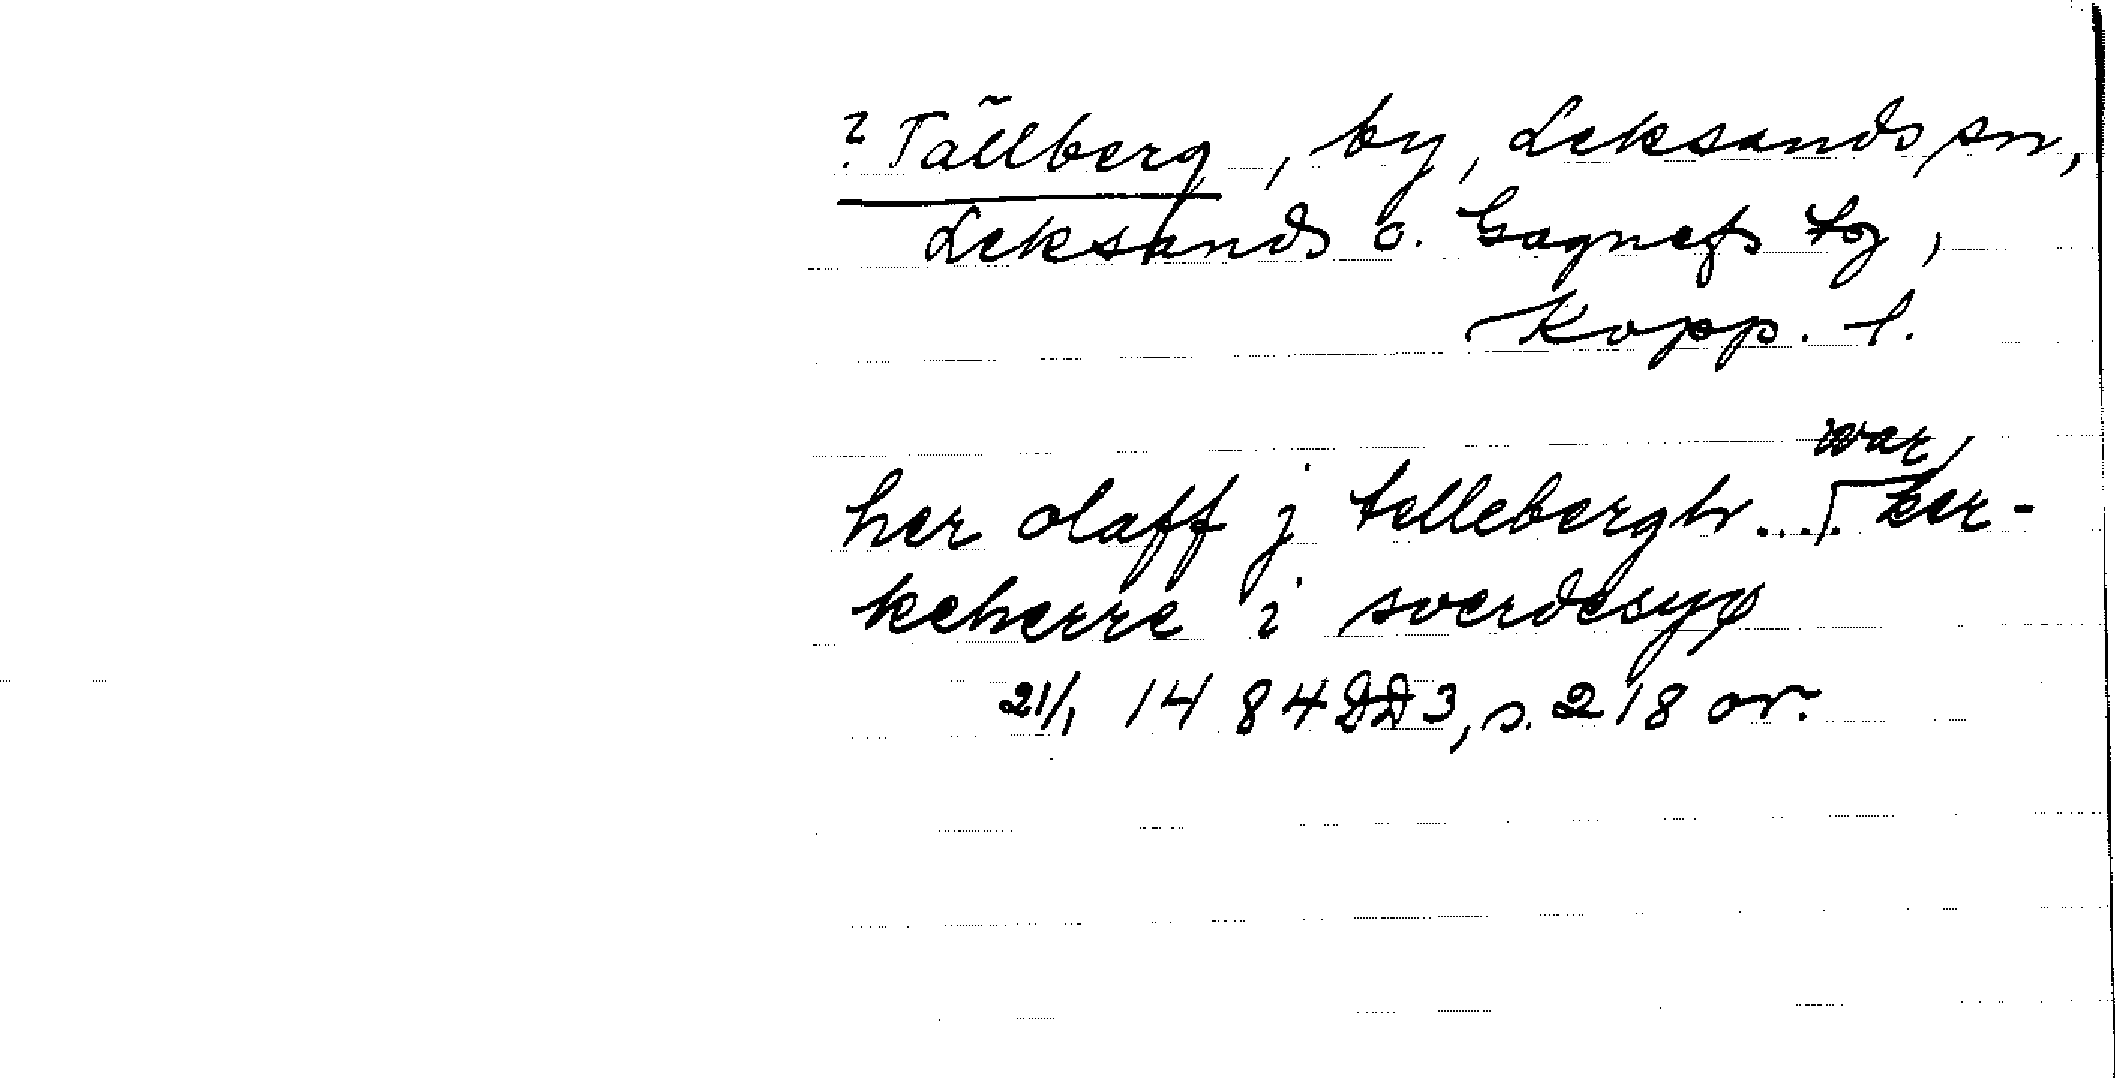 ? Tällberg, by, Leksands sn,
Leksands o. Gagnefs tg,
Kopp. l.
war
her olaff j tellebergh .... ker-
keherre i sverdesyø
21/1 1484 DD3, s. 218 or.